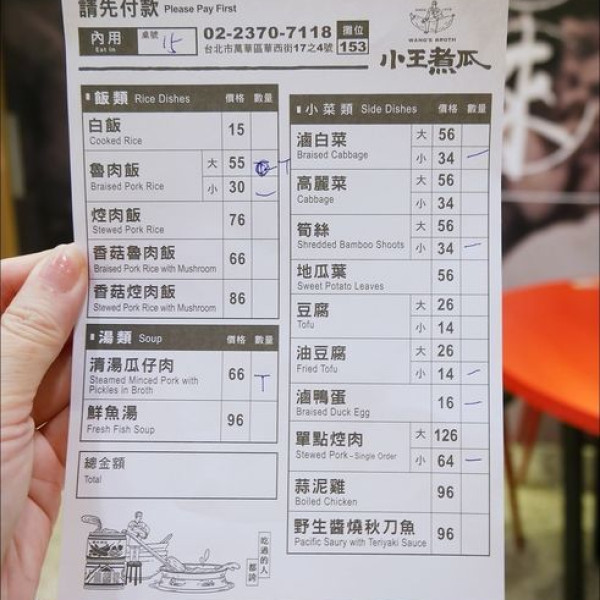 請先付款 Please Pay First
內用 Eat in 桌號 15
02-2370-7118
台北市萬華區華西街17之4號
攤位 153
WANG'S BROTH
小王煮瓜
飯類 Rice Dishes 價格 數量
白飯 15
Cooked Rice
魯肉飯 大 55
Braised Pork Rice 小 30 一
焢肉飯 76
Stewed Pork Rice
香菇魯肉飯 66
Braised Pork Rice with Mushroom
香菇焢肉飯 86
Stewed Pork Rice with Mushroom
湯類 Soup 價格 數量
清湯瓜仔肉 66 T
Steamed Minced Pork with
Pickles in Broth
鮮魚湯 96
Fresh Fish Soup
總金額
Total
吃過的人
都誇
小菜類 Side Dishes 價格 數量
滷白菜 大 56
Braised Cabbage 小 34 一
高麗菜 大 56
Cabbage 小 34
筍絲 大 56
Shredded Bamboo Shoots 小 34 一
地瓜葉 56
Sweet Potato Leaves
豆腐 大 26
Tofu 小 14
油豆腐 大 26
Fried Tofu 小 14 一
滷鴨蛋 16 一
Braised Duck Egg
單點焢肉 大 126
Stewed Pork – Single Order 小 64 一
蒜泥雞 96
Boiled Chicken
野生醬燒秋刀魚 96
Pacific Saury with Teriyaki Sauce